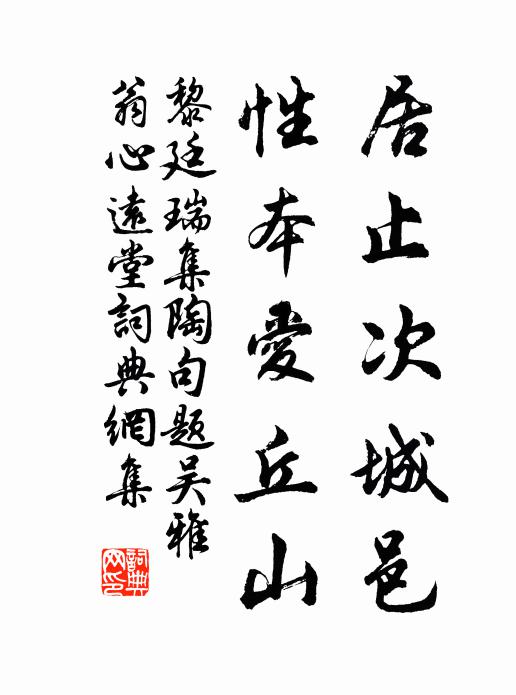 居止次城邑
性本愛丘山
黎廷瑞集陶句题吴雅
翁心遠堂詞典網集
詞典網印